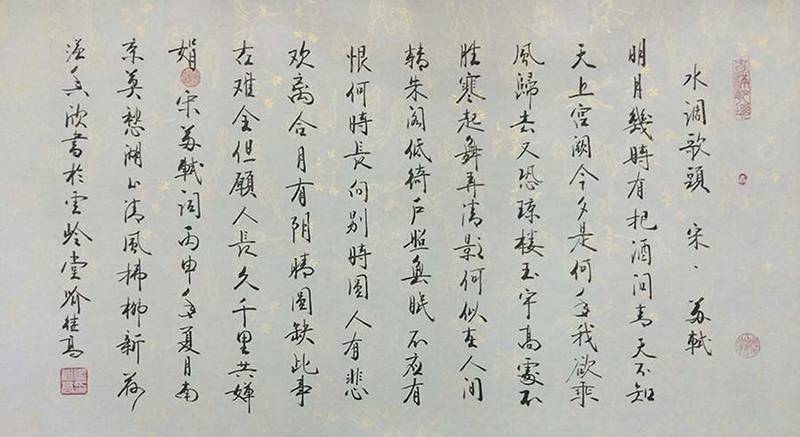 水调歌頭 宋、苏軾
明月幾時有把酒问青天不知
天上宫阙今夕是何年我欲乘
風歸去又恐琼楼玉宇高處不
胜寒起舞弄清影何似在人间
轉朱阁低绮户照無眠不应有
恨何時長向别時圆人有悲
欢离合月有阴晴圆缺此事
古难全但願人長久千里共婵
娟 宋苏軾词丙申年夏月南
京莫愁湖上清風拂柳新荷
溢香欣書於雲岭堂喻桂高